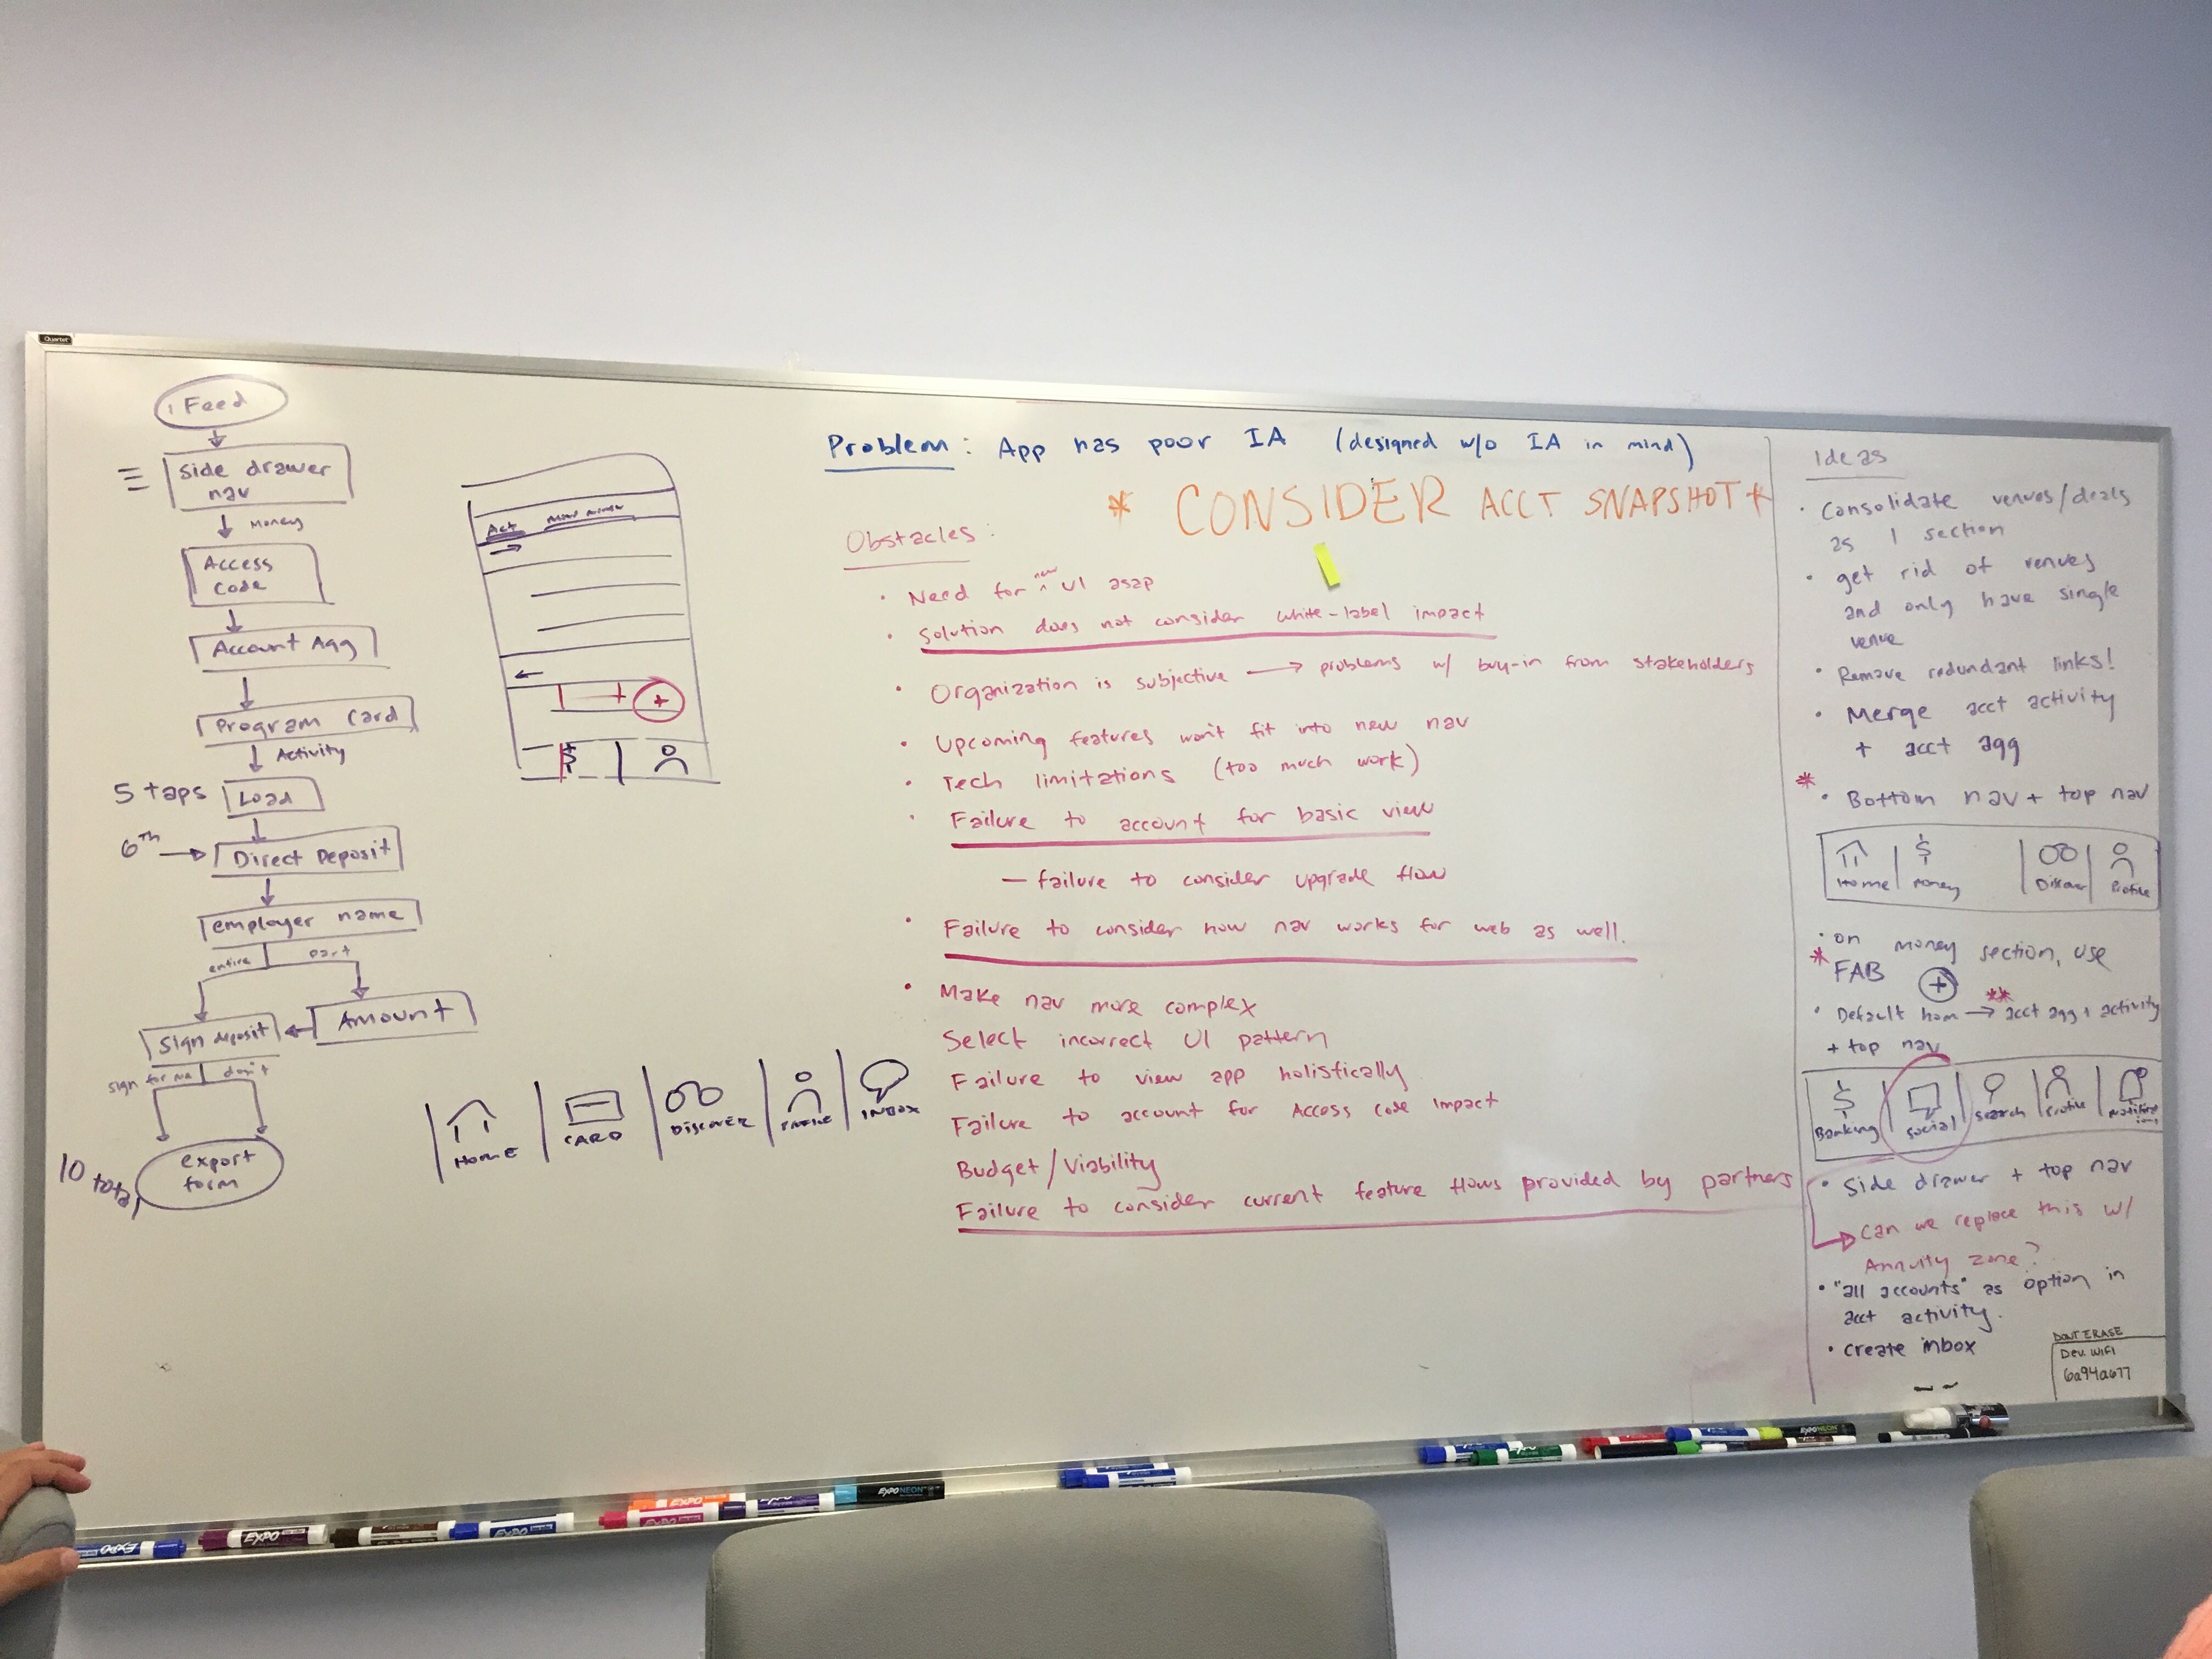 Quartet
1 Feed
Side drawer
nav
Money
Access
Code
Account Agg
Program Card
Activity
5 taps
Load
6Th
Direct Deposit
employer name
entire
part
Sign deposit
Amount
sign for me
don't
export
form
10 total
Act
HOME
CARD
DISCOVER
PROFILE
INBOX
Problem: App has poor IA (designed w/o IA in mind)
* CONSIDER ACCT SNAPSHOT *
Obstacles:
• Need for new UI asap
• Solution does not consider white-label impact
• Organization is subjective → problems w/ buy-in from stakeholders
• Upcoming features won't fit into new nav
• Tech limitations (too much work)
• Failure to account for basic view
— failure to consider upgrade flow
• Failure to consider how nav works for web as well.
• Make nav more complex
Select incorrect UI pattern
Failure to view app holistically
Failure to account for Access code impact
Budget/Viability
Failure to consider current feature flows provided by partners
Ideas
• Consolidate venues/deals
as 1 section
• get rid of venues
and only have single
venue
• Remove redundant links!
• Merge acct activity
+ acct agg
*
• Bottom nav + top nav
Home
Money
Discover
Profile
• on money section, use
* FAB +
• Default hom → ** acct agg + activity
+ top nav
Banking
Social
Search
Profile
Notifications
• Side drawer + top nav
→ Can we replace this w/
Annuity zone?
• "all accounts" as option in
acct activity.
• create inbox
DONT ERASE
Dev. WiFi
6a94a677
EXPO
EXPO
EXPO
EXPO
EXPO
EXPO NEON
EXPO NEON